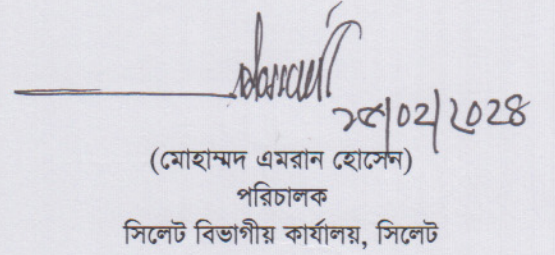 ২৫/০২/২০২৪
(মোহাম্মদ এমরান হোসেন)
পরিচালক
সিলেট বিভাগীয় কার্যালয়, সিলেট